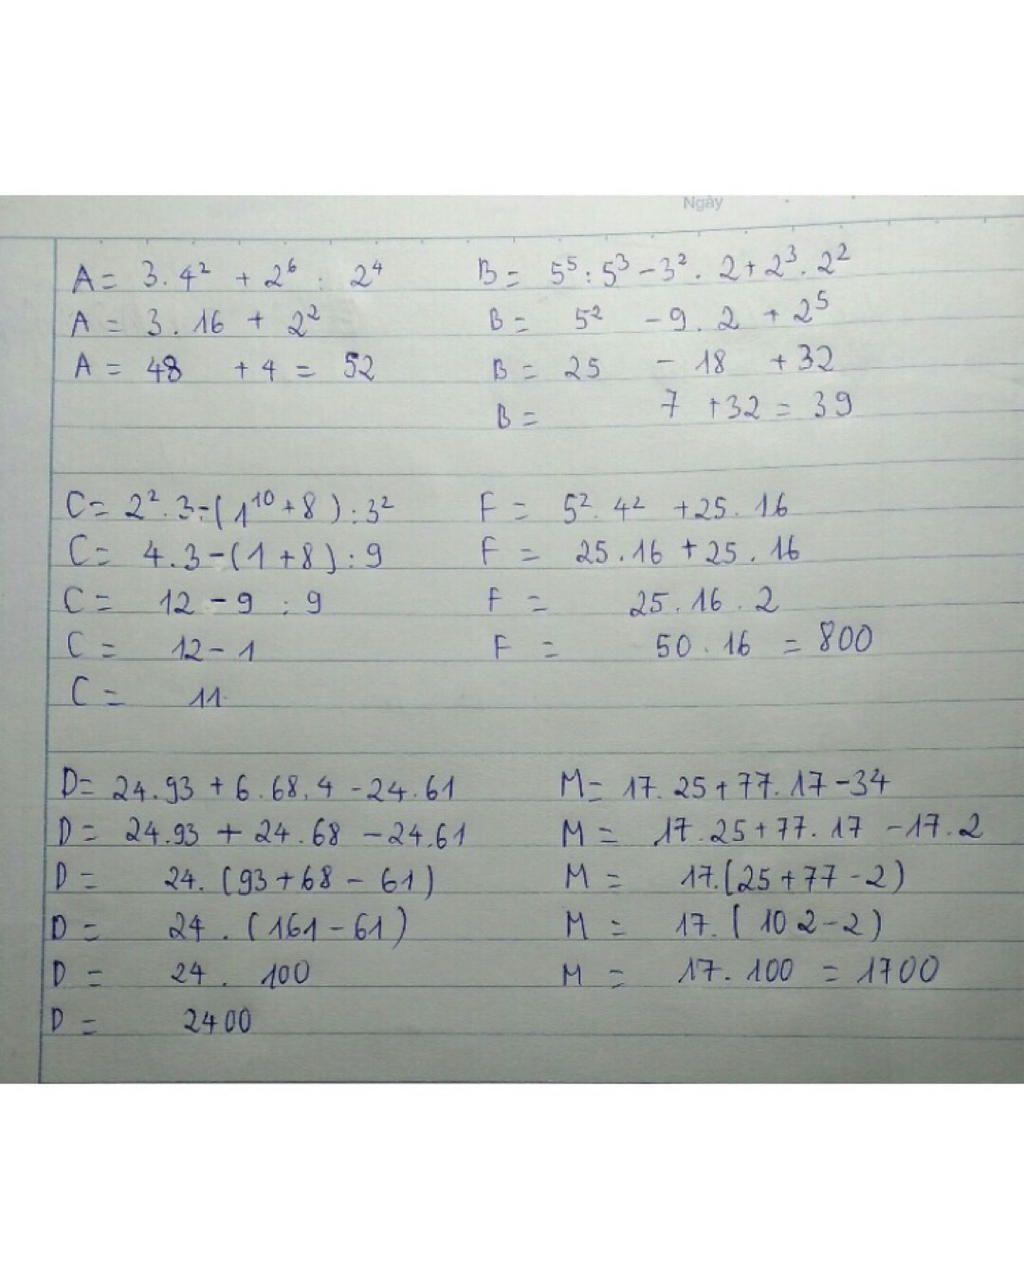 Ngày
A = 3 . 4² + 2⁶ : 2⁴
A = 3 . 16 + 2²
A = 48 + 4 = 52
B = 5⁵ : 5³ - 3² . 2 + 2³ . 2²
B = 5² - 9 . 2 + 2⁵
B = 25 - 18 + 32
B = 7 + 32 = 39
C = 2² . 3 - (1¹⁰ + 8) : 3²
C = 4 . 3 - (1 + 8) : 9
C = 12 - 9 : 9
C = 12 - 1
C = 11
F = 5² . 4² + 25 . 16
F = 25 . 16 + 25 . 16
F = 25 . 16 . 2
F = 50 . 16 = 800
D = 24 . 93 + 6 . 68 . 4 - 24 . 61
D = 24 . 93 + 24 . 68 - 24 . 61
D = 24 . (93 + 68 - 61)
D = 24 . (161 - 61)
D = 24 . 100
D = 2400
M = 17 . 25 + 77 . 17 - 34
M = 17 . 25 + 77 . 17 - 17 . 2
M = 17 . (25 + 77 - 2)
M = 17 . (102 - 2)
M = 17 . 100 = 1700